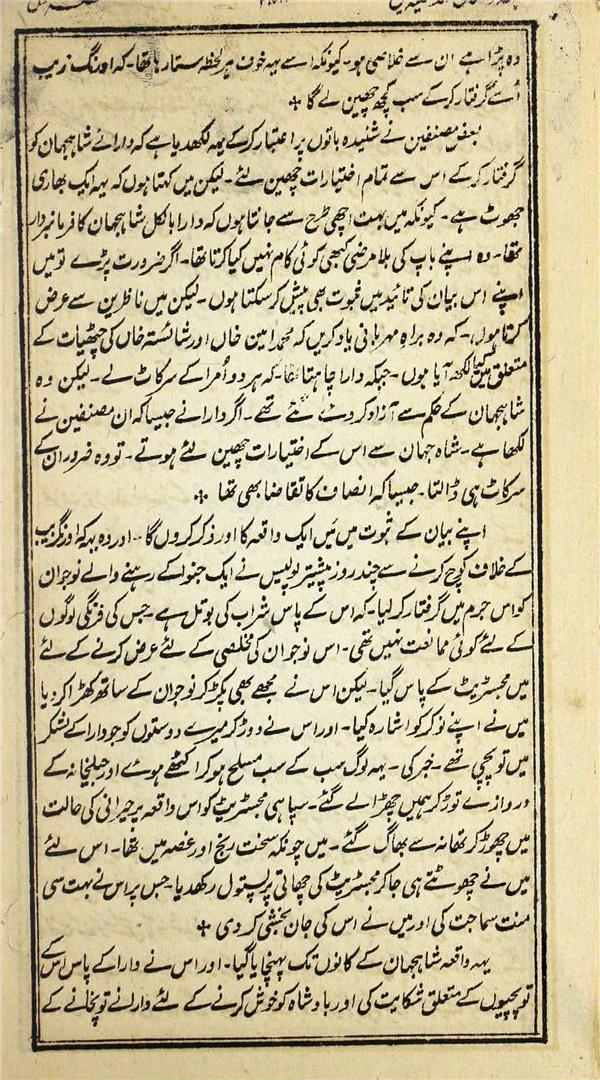 وہ پڑا ہے ان سے خلاصی ہو۔ کیونکہ اسے یہہ خوف ہر لحظہ ستار ہا تھا۔ کہ اورنگ زیب
اُسے گرفتار کر کے سب کچھ چھین لے گا +
بعض مصنفین نے شنیدہ باتوں پر اعتبار کر کے یہہ لکھدیا ہے کہ دارا نے شاہجہان کو
گرفتار کر کے اس سے تمام اختیارات چھین لئے۔ لیکن میں کہتا ہوں کہ یہہ ایک بھاری
جھوٹ ہے۔ کیونکہ میں بہت اچھی طرح سے جانتا ہوں کہ دارا بالکل شاہجہان کا فرمانبردار
تھا۔ وہ اپنے باپ کی بلا مرضی کبھی کوئی کام نہیں کیا کرتا تھا۔ اگر ضرورت پڑے تو میں
اپنے اس بیان کی تائید میں ثبوت بھی پیش کر سکتا ہوں۔ لیکن میں ناظرین سے عرض
کرتا ہوں۔ کہ وہ براہِ مہربانی یاد کریں کہ محمد امین خاں اور شائستہ خاں کی چٹھیات کے
متعلق میں کیا لکھ آیا ہوں۔ جبکہ دارا چاہتا تھا۔ کہ ہر دو اُمرا کے سر کاٹ لے۔ لیکن وہ
شاہجہان کے حکم سے آزاد کر دئے گئے تھے۔ اگر دارا نے جیسا کہ ان مصنفین نے
لکھا ہے۔ شاہ جہان سے اس کے اختیارات چھین لئے ہوتے۔ تو وہ ضرور ان کے
سر کاٹ ہی ڈالتا۔ جیسا کہ انصاف کا تقاضا بھی تھا +
اپنے بیان کے ثبوت میں مَیں ایک واقعہ کا اور ذکر کروں گا۔ اور وہ یہہ کہ اورنگزیب
کے خلاف کوچ کرنے سے چند روز پیشتر پولیس نے ایک جنوا کے رہنے والے نوجوان
کو اس جرم میں گرفتار کر لیا۔ کہ اس کے پاس شراب کی بوتل ہے۔ جس کی فرنگی لوگوں
کے لئے کوئی ممانعت نہیں تھی۔ اس نوجوان کی مخلصی کے لئے عرض کرنے کے لئے
میں مجسٹریٹ کے پاس گیا۔ لیکن اس نے مجھے بھی پکڑ کر نوجوان کے ساتھ کھڑا کر دیا
میں نے اپنے نوکر کو اشارہ کیا۔ اور اس نے دوڑ کر میرے دوستوں کو جو دارا کے لشکر
میں توپچی تھے۔ خبر کی۔ یہہ لوگ سب کے سب مسلح ہو کر اکٹھے ہوئے اور جیلخانہ کے
دروازے توڑ کر ہمیں چھڑا لے گئے۔ سپاہی مجسٹریٹ کو اس واقعہ پر حیرانی کی حالت
میں چھوڑ کر تھانہ سے بھاگ گئے۔ میں چونکہ سخت رنج اور غصہ میں تھا۔ اس لئے
میں نے چھوٹتے ہی جا کر مجسٹریٹ کی چھاتی پر پستول رکھدیا۔ جس پر اس نے بہت سی
منت سماجت کی اور میں نے اس کی جان بخشی کر دی +
یہہ واقعہ شاہجہان کے کانوں تک پہنچایا گیا۔ اور اس نے دارا کے پاس اس کے
توپچیوں کے متعلق شکایت کی اور بادشاہ کو خوش کرنے کے لئے دارا نے توپخانے کے